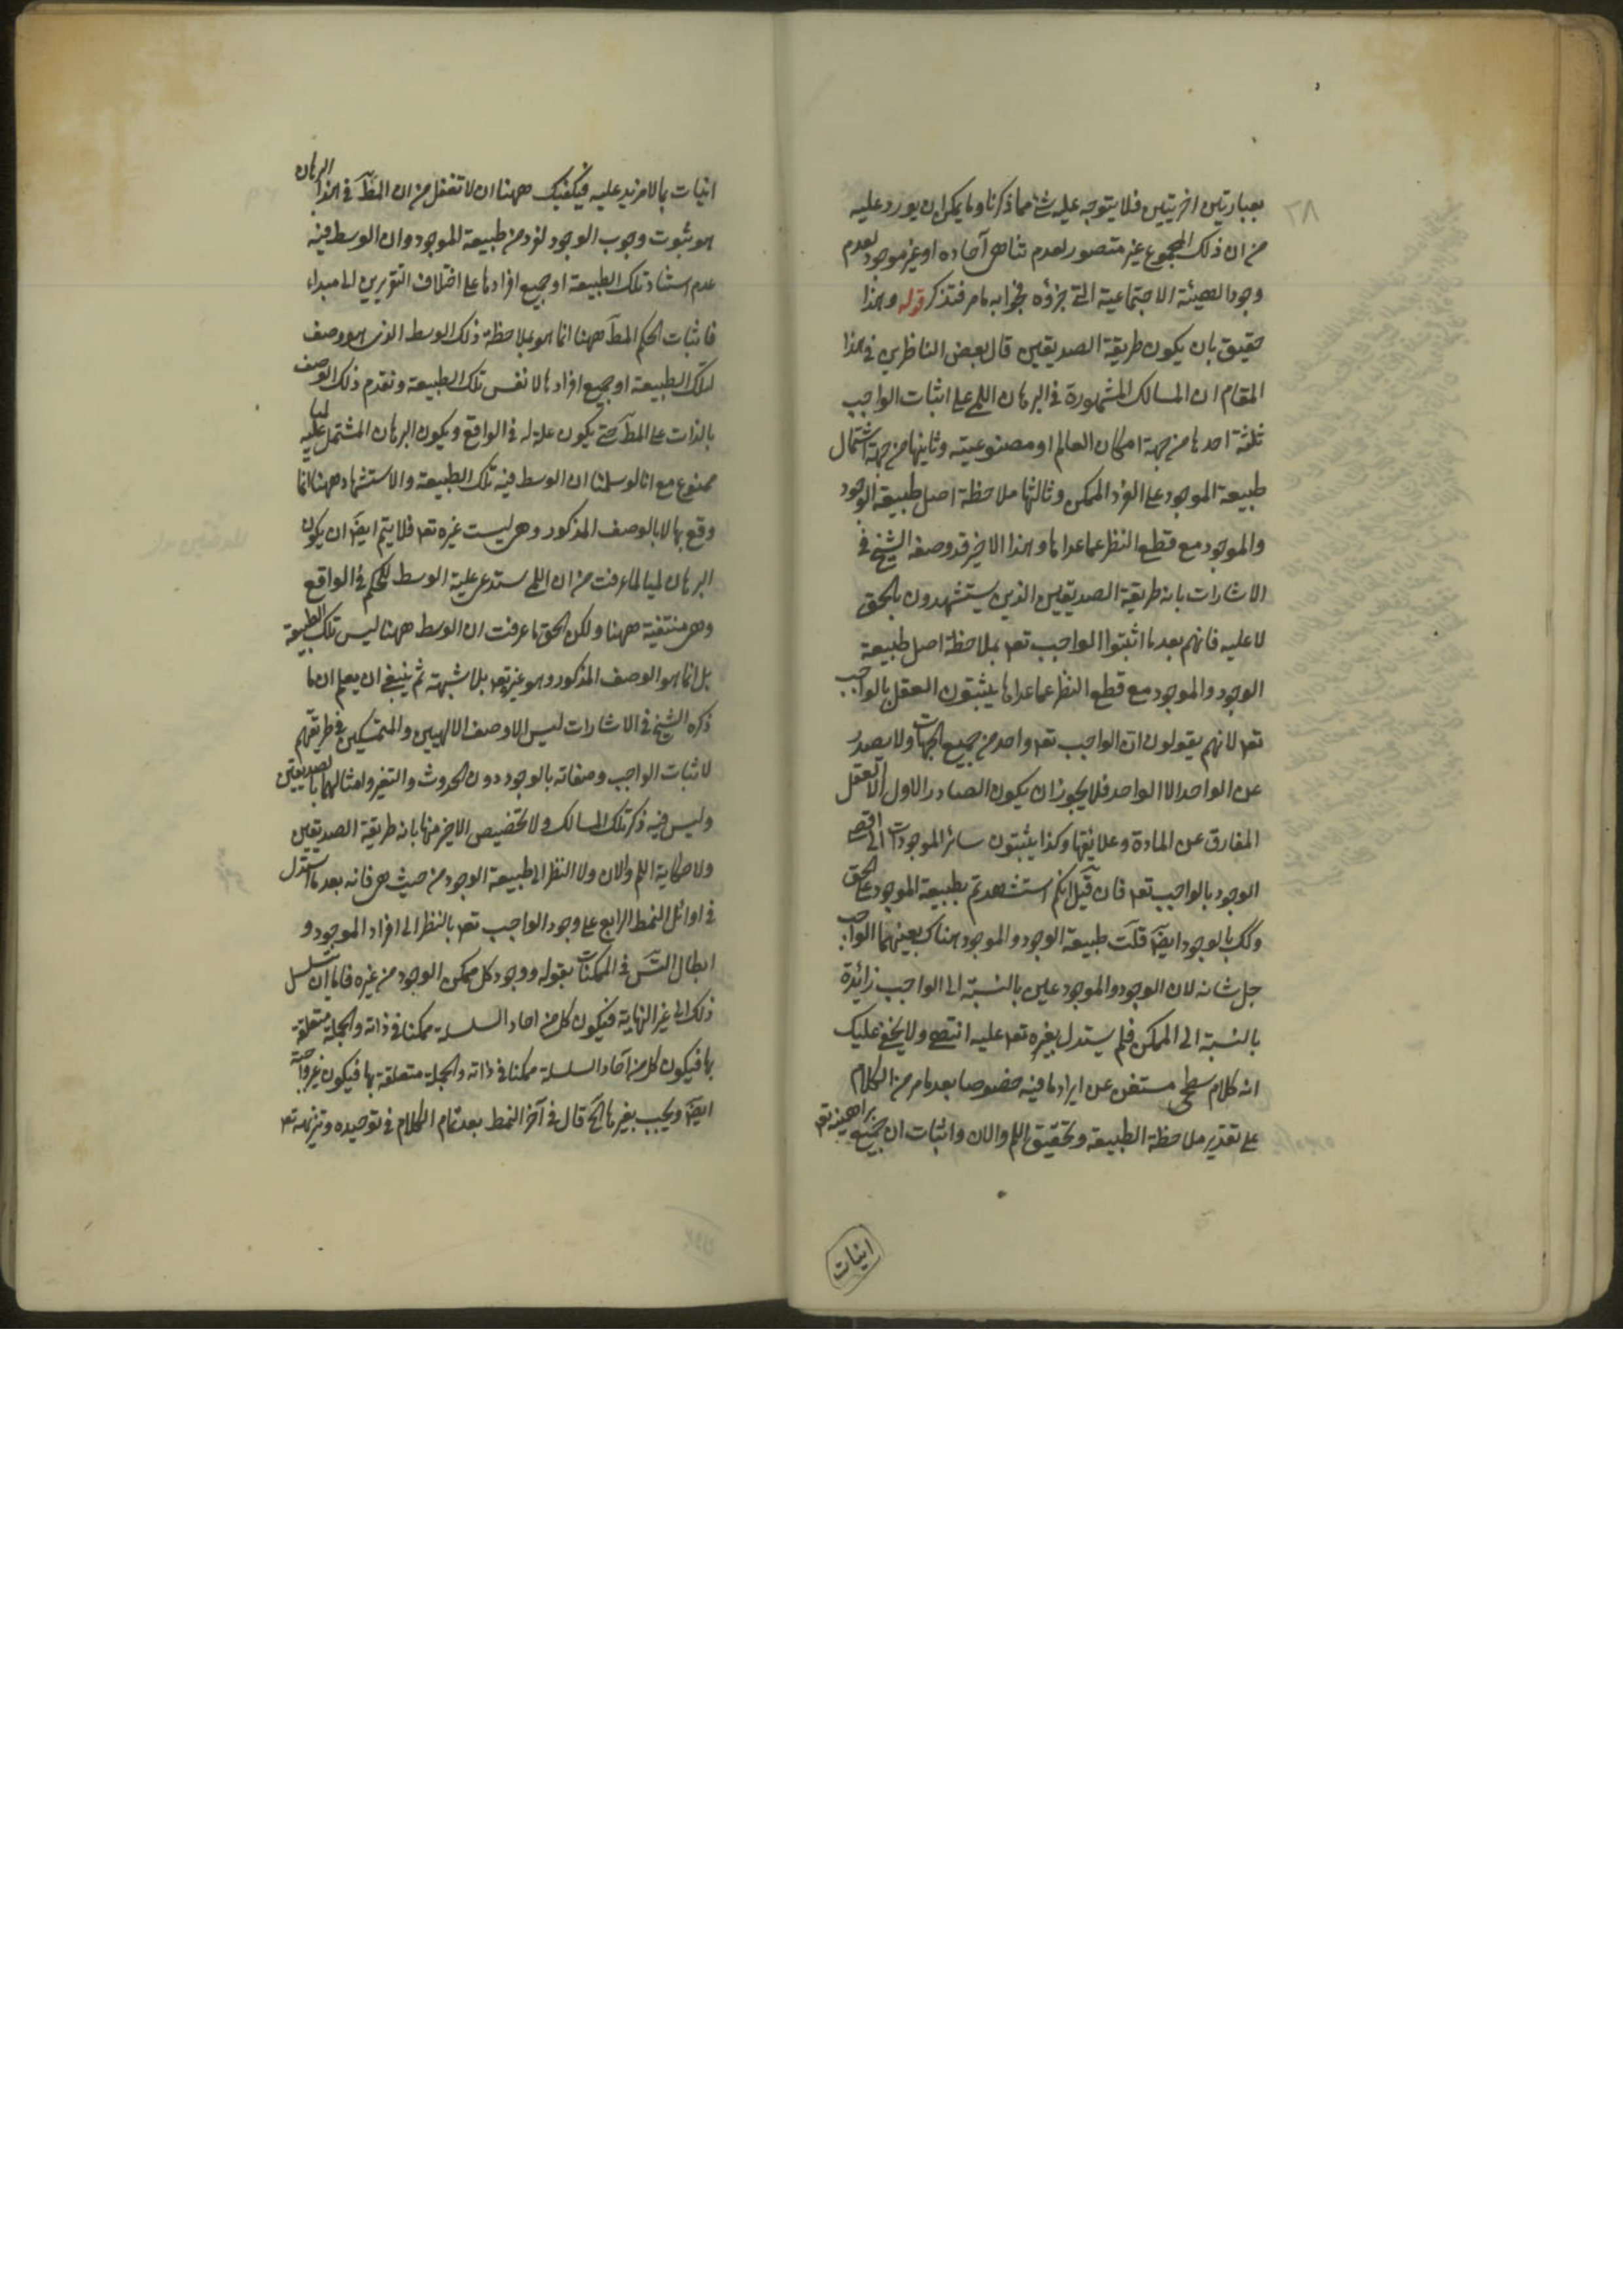 ٣٨
بعبارتين اخريتين فلا يتوجه عليه شئ مما ذكرنا وما يمكن ان يورد عليه
من ان ذلك المجموع غير متصور لعدم تناهى آحاده او غير موجود لعدم
وجود الهيئة الاجتماعية التى جزؤه فجوابه ما مر فتذكر قوله وهذا
حقيق بان يكون طريقة الصديقين قال بعض الناظرين فى هذا
المقام ان المسالك المشهورة فى البرهان اللمى على اثبات الواجب
ثلثة احدها من جهة امكان العالم او مصنوعيته وثانيها من جهة اشتمال
طبيعة الموجود على الفرد الممكن وثالثها ملاحظة اصل طبيعة الوجود
والموجود مع قطع النظر عما عداها وهذا الاخير قد وصفه الشيخ فى
الاشارات بانه طريقة الصديقين الذين يستشهدون بالحق
لا عليه فانهم بعد ما اثبتوا الواجب تعه بملاحظة اصل طبيعة
الوجود والموجود مع قطع النظر عما عداها يثبتون العقل بالواجب
تعه لانهم يقولون ان الواجب تعه واحد من جميع الجهات ولا يصدر
عن الواحد الا الواحد فلا يجوز ان يكون الصادر الاول الا العقل
المفارق عن المادة وعلائقها وكذا يثبتون سائر الموجودات الى اقصى
الوجود بالواجب تعه فان قيل انكم استشهدتم بطبيعة الموجود على الحق
وكك بالوجود ايضا قلت طبيعة الوجود والموجود هناك بعينهما الواجب
جل شانه لان الوجود والموجود عين بالنسبة الى الواجب زائدة
بالنسبة الى الممكن فلم يستدل بغيره تعه عليه انتهى ولا يخفى عليك
انه كلام سطحى مستغن عن ايراد ما فيه خصوصا بعد ما مر من الكلام
على تقدير ملاحظة الطبيعة وتحقيق اللم والان واثبات ان جميع براهينه تعه
انيات
انيات بما لا مزيد عليه فيكفيك ههنا ان لا تغفل من ان المط فى هذا البرهان
هو ثبوت وجوب الوجود لفرد من طبيعة الموجود وان الوسط فيه
عدم استناد تلك الطبيعة او جميع افرادها على اختلاف التقريرين الى مبداء
فاثبات الحكم المط ههنا انما هو بملاحظة ذلك الوسط الذى هو وصف
لتلك الطبيعة او جميع افرادها لا نفس تلك الطبيعة وتقدم ذلك الوصف
بالذات على المط حتى يكون علة له فى الواقع ويكون البرهان المشتمل عليه لميا
ممنوع مع انا لو سلمنا ان الوسط فيه تلك الطبيعة والاستشهاد ههنا انما
وقع بها لا بالوصف المذكور وهى ليست غيره تعه فلا يتم ايضا ان يكون
البرهان لميا لما عرفت من ان اللمى يستدعى علية الوسط للحكم فى الواقع
وهى منتفية ههنا ولكن الحق ما عرفت ان الوسط ههنا ليس تلك الطبيعة
بل انما هو الوصف المذكور وهو غيره تعه بلا شبهة ثم ينبغى ان يعلم ان ما
ذكره الشيخ فى الاشارات ليس الا وصف الالهيين والمتمسكين فى طريقتهم
لاثبات الواجب وصفاته بالوجود دون الحدوث والتغير وامثالهما بالصديقين
وليس فيه ذكر تلك المسالك ولا تخصيص الاخير منها بانه طريقة الصديقين
ولا حكاية اللم والان ولا النظر الى طبيعة الوجود من حيث هى فانه بعد ما استدل
فى اوائل النمط الرابع على وجود الواجب تعه بالنظر الى افراد الموجود و
ابطال التس فى الممكنات بقوله ووجود كل ممكن الوجود من غيره فاما ان يتسلسل
ذلك الى غير النهاية فيكون كل من احاد السلسلة ممكنا فى ذاته والجملة متعلقة
بها فيكون كل من آحاد السلسلة ممكنا فى ذاته والجملة متعلقة بها فيكون غير واجبة
ايضا ويجب بغيرها الخ قال فى آخر النمط بعد تمام الكلام فى توحيده وتنزيهه تعه